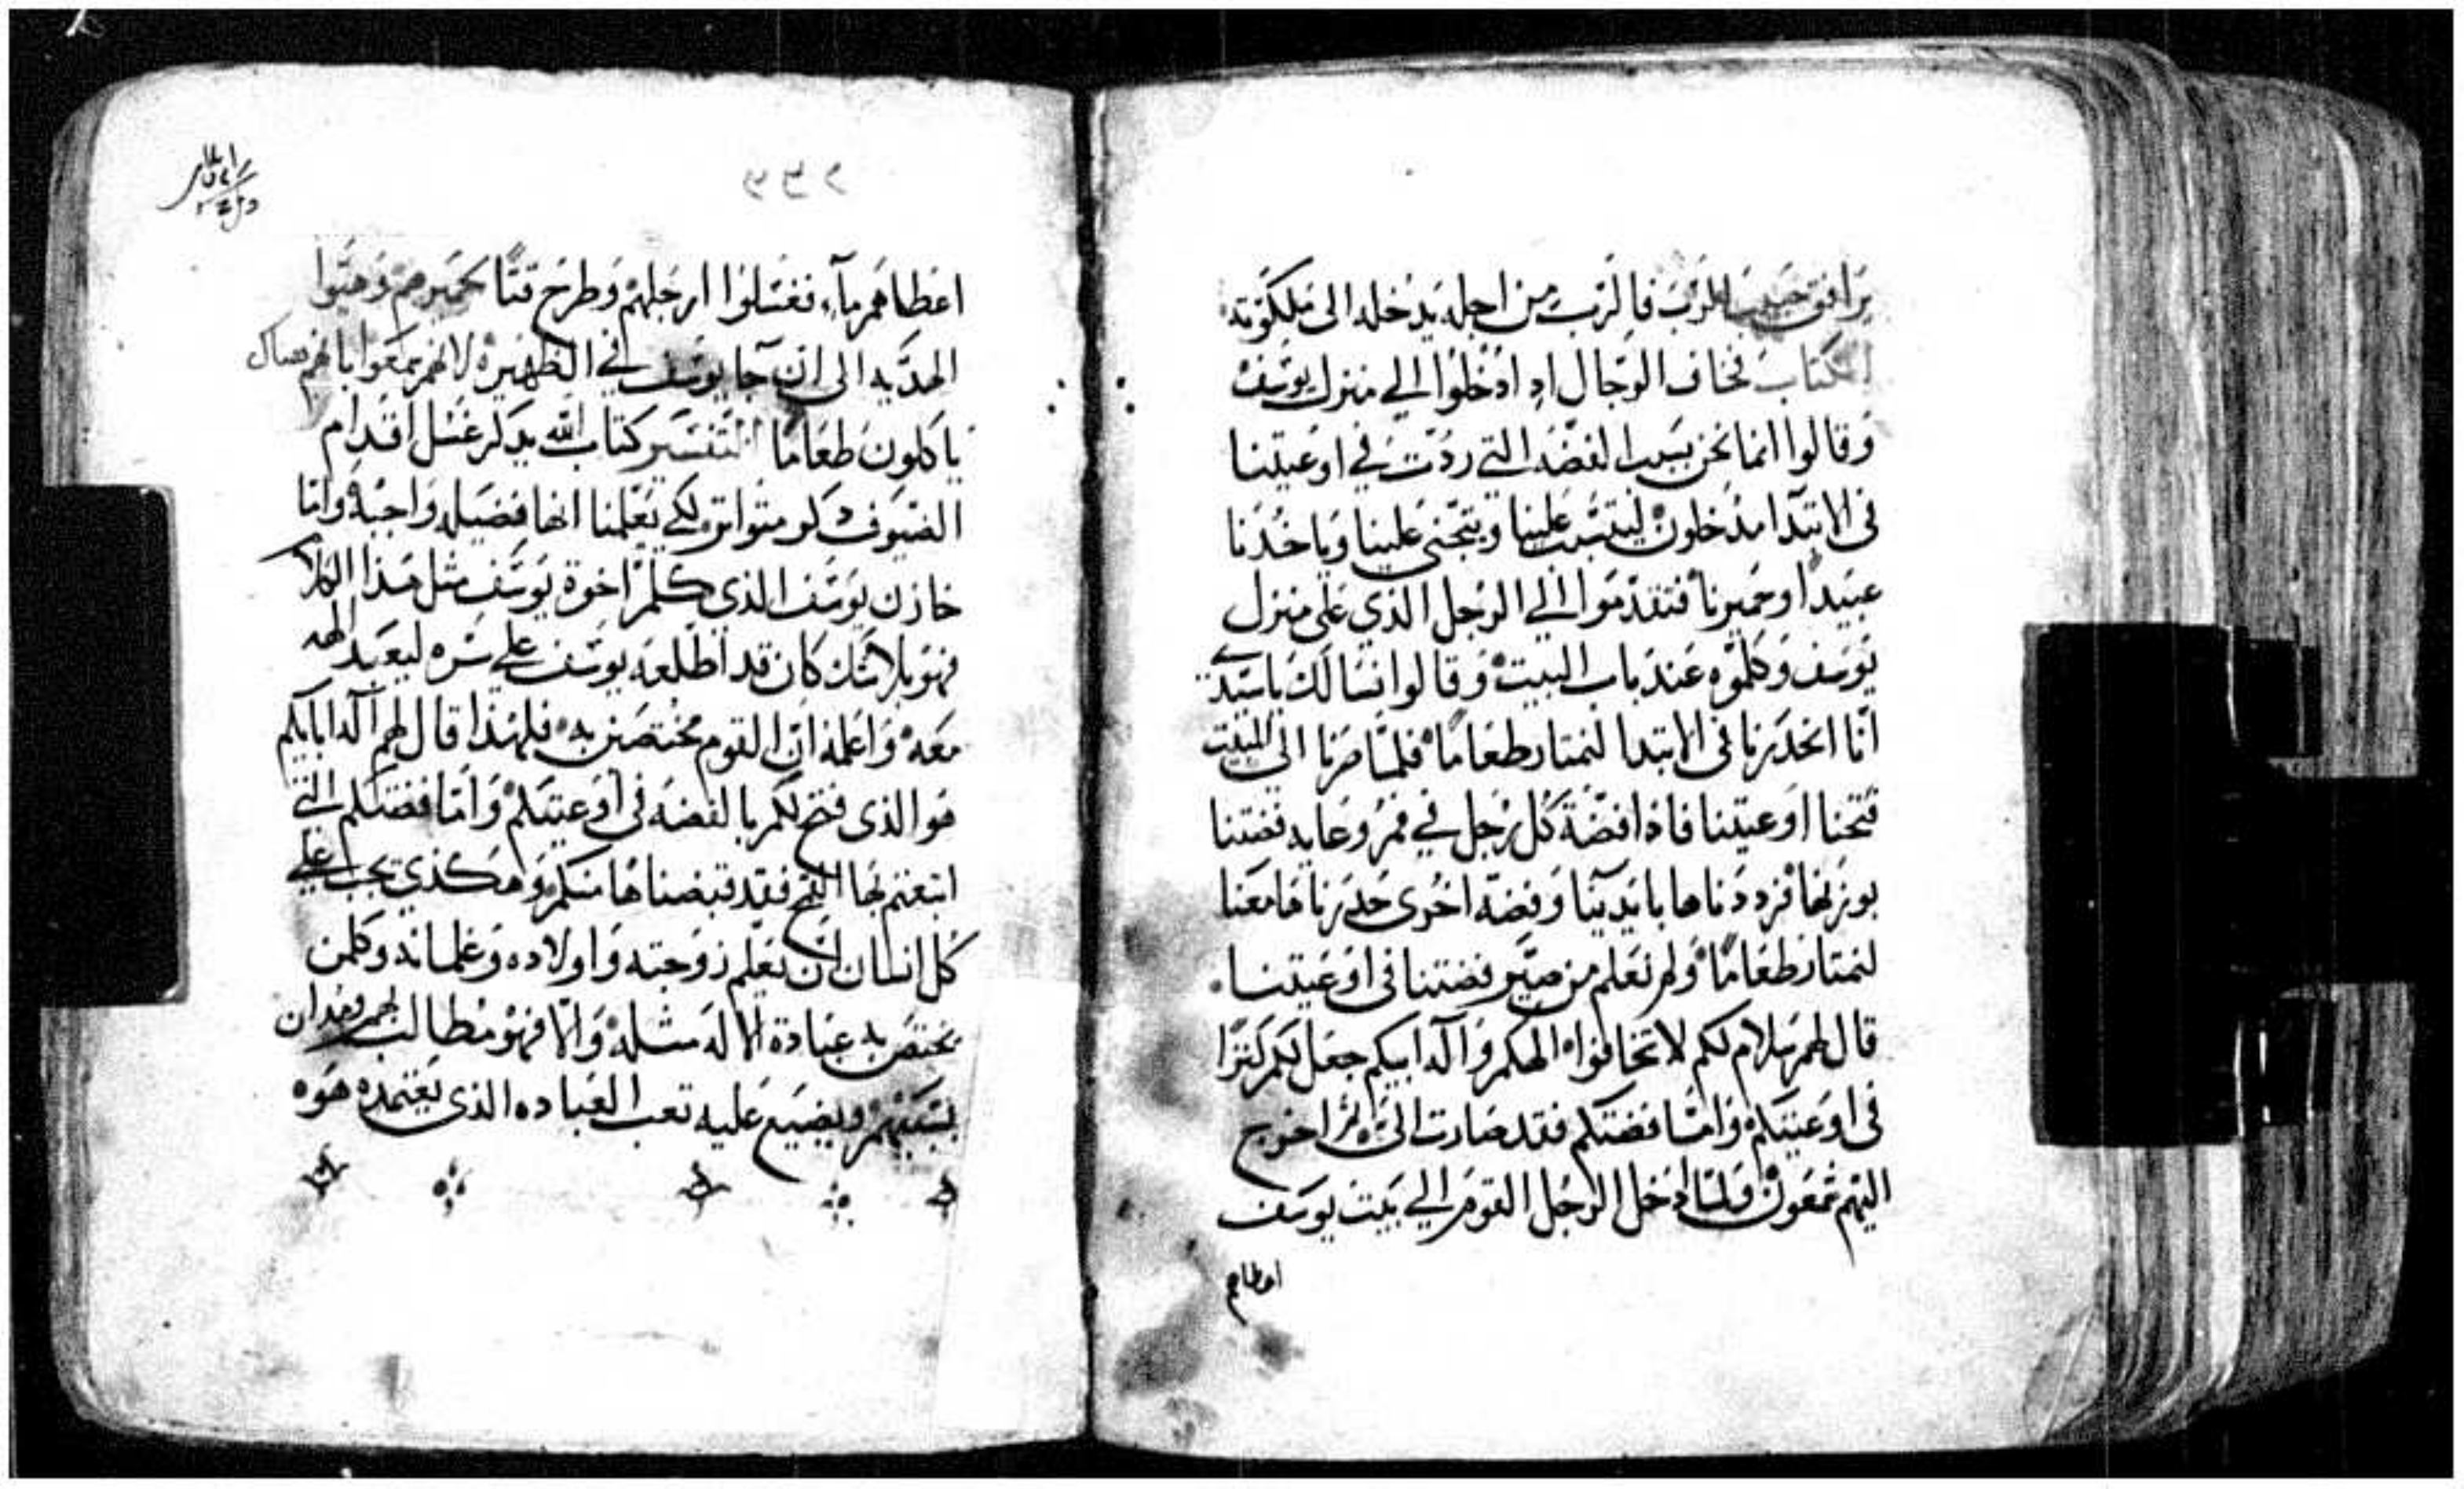 يرافق حبيب الرب فالرب من اجله يدخله الى ملكوته
الكتاب فخاف الرجال اد ادخلوا الي منزل يوسف
وقالوا انما نحن بسبب الفضه التي ردت في اوعيتنا
في الابتدا مدخلون ليتسبب علينا ويتجنى علينا وياخدنا
عبيدا وحميرنا فتقدموا الي الرجل الذي على منزل
يوسف وكلموه عند باب البيت وقالوا نسالك ياسيدي
انا انحدرنا في الابتدا لنمتار طعاما فلما صرنا الي المبيت
فتحنا اوعيتنا فاذا فضة كل رجل في فم وعايه فضتنا
بوزنها فرددناها بايدينا وفضه اخرى حدرناها معنا
لنمتار طعاما ولم نعلم من صير فضتنا في اوعيتنا
قال لهم سلام لكم لا تخافوا الهكم واله ابيكم جعل لكم كنزا
في اوعيتكم واما فضتكم فقد صارت الي ثم اخرج
اليهم شمعون ولما ادخل الرجل القوم الي بيت يوسف
اعطاهم
اعطاهم مآء فغسلوا ارجلهم وطرح قتا لحميرهم وهيوا
الهديه الى ان جا يوسف في الظهيره لانهم سمعوا بانهم هناك
ياكلون طعاما التفسير كتاب الله يدكر غسل اقدام
الضيوف دكر متواتر لكي يعلمنا انها فضيله واجبه واما
خازن يوسف الذي كلم اخوة يوسف مثل هذا الكلام
فهو بلا شك كان قد اطلعه يوسف علي سره ليعبد الله
معه واعلمه ان القوم مختصين به فلهذا قال لهم اله ابايكم
هو الذي فتح لكم بالفضه في اوعيتكم واما فضتكم التي
ابتعتم بها القمح فقد قبضناها منكم وهكذي يجب علي
كل انسان ان يعلم زوجته واولاده وغلمانه وكلمن
يختص به عبادة الاله مثله والا فهو مطالب بهم ومدان
بسببهم ويضيع عليه تعب العباده الذي يعتمده هوه